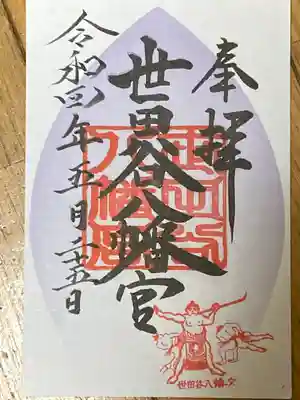 奉拝
世田谷八幡宮
令和四年五月二十五日
世田谷八幡宮